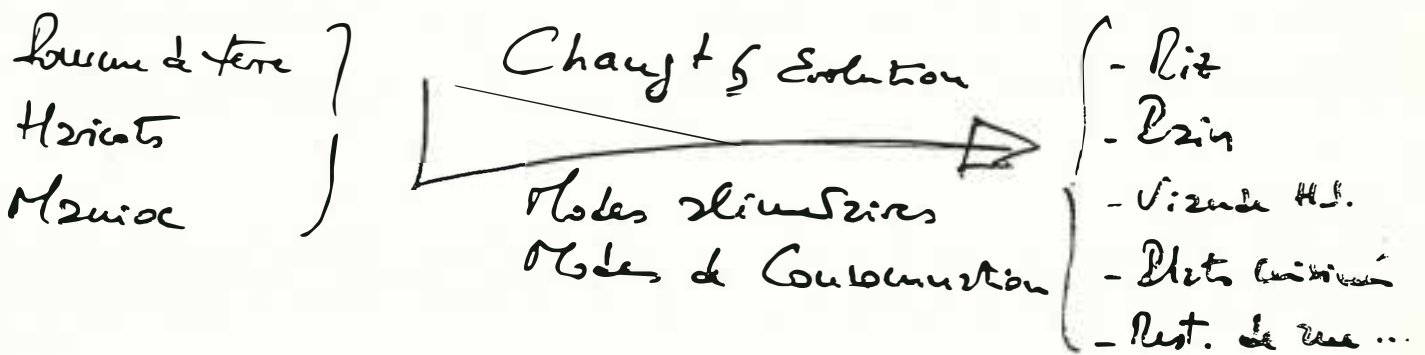 Pomme de terre
Haricots
Manioc
Changt & Evolution
Modes alimentaires
Modes de Consommation
- Riz
- Pain
- Viande
- Plats cuisinés
- Rest. de rue ...